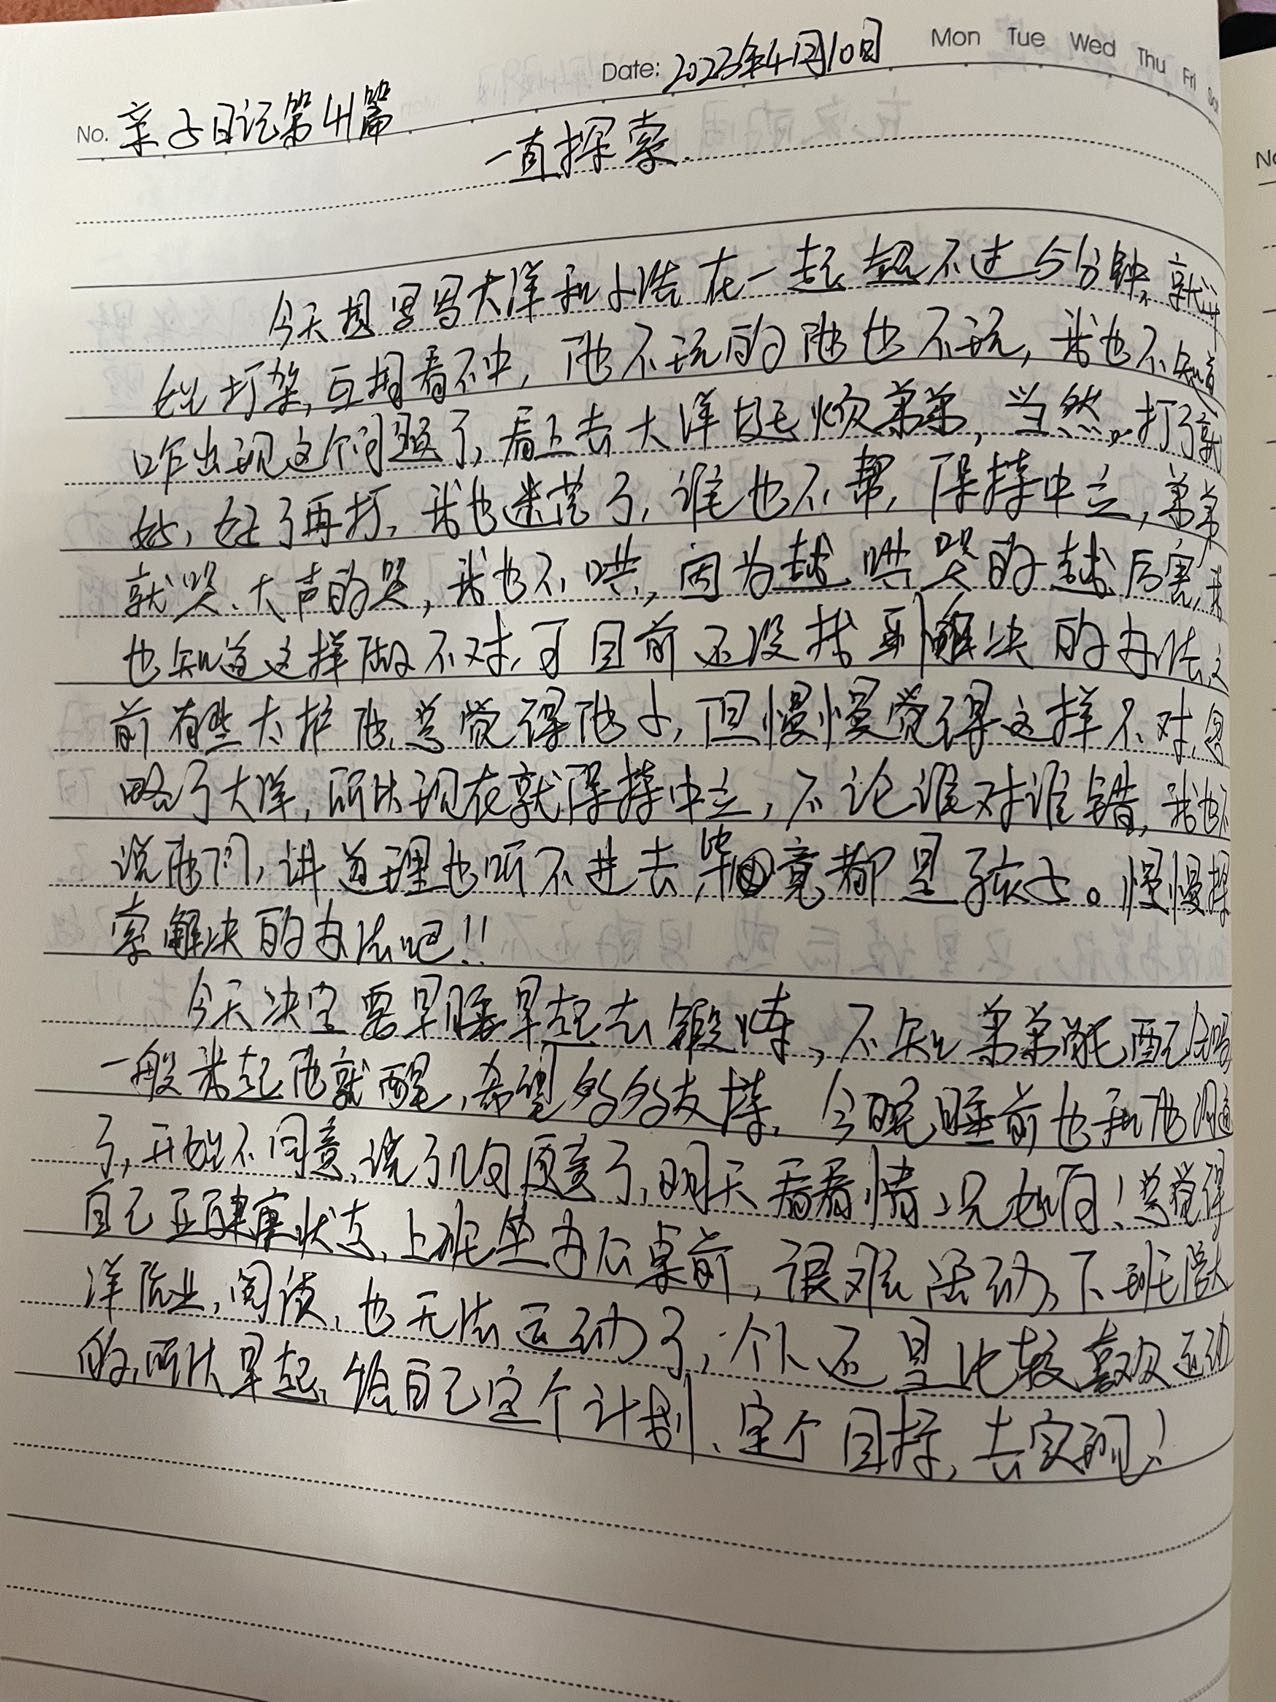 Date: 2023年4月10日 Mon Tue Wed Thu Fri
No. 亲子日记第41篇
一直探索.
今天想写写大洋和小浩在一起超不过5分钟,就开
始打架,互相看不中,他不玩的他也不玩,我也不知道
咋出现这个问题了,看上去大洋挺烦弟弟,当然,打了就
好,好了再打,我也迷茫了,谁也不帮,保持中立,弟弟
就哭、大声的哭,我也不哄,因为越哄哭的越厉害,我
也知道这样做不对,可目前还没找到解决的办法,之
前有些太护他,总觉得他小,但慢慢觉得这样不对,忽
略了大洋,所以现在就保持中立,不论谁对谁错,我也不
说他们,讲道理也听不进去,毕竟都是孩子。慢慢探
索解决的办法吧!!
今天决定要早睡早起去锻炼,不知弟弟能配合吗
一般我起他就醒,希望多多支持,今晚睡前也和他沟通
了,开始不同意,说了几句愿意了,明天看看情况如何!总觉得
自己亚健康状态,上班坐办公桌前,很难活动,下班陪大
洋作业,阅读,也无法运动了,个人还是比较喜欢运动
的,所以早起,给自己定个计划、定个目标,去实现!